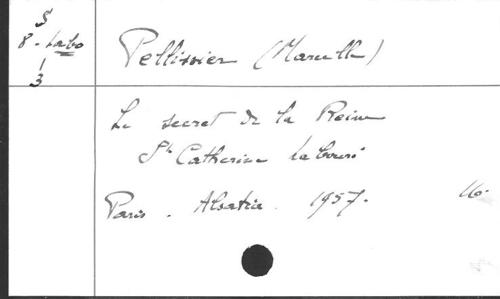 S
8 - Labo
3
Pellissier (Marcelle)
Le secret de la Reine
Ste Catherine Labouré
Paris. Alsatia. 1957. 16.